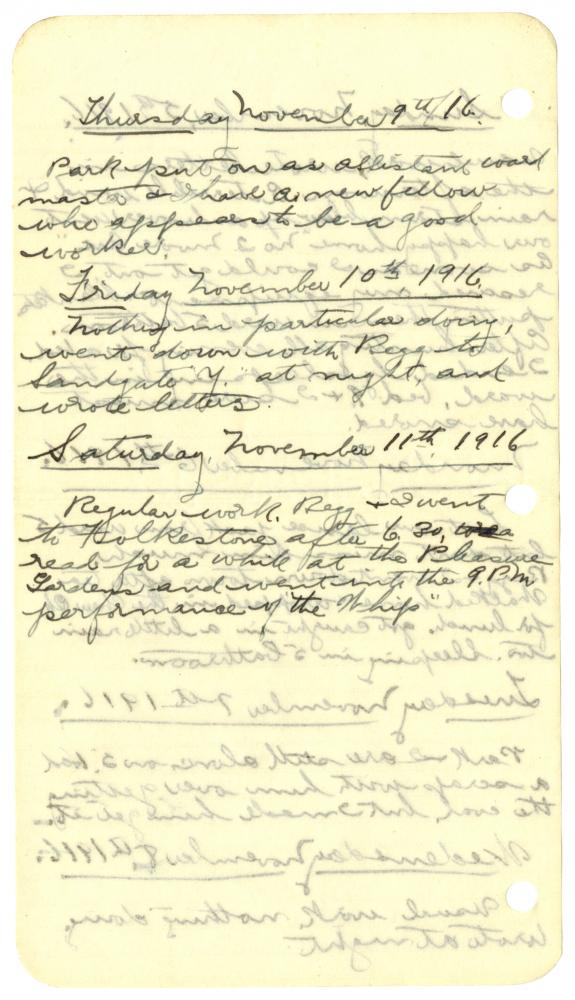 Thursday November 9th/16.
Park put on as assistant ward
master & I have a new fellow
who appears to be a good
worker.
Friday November 10th 1916.
Nothing in particular doing,
went down with Regg to
Sandgate Y. at night, and
wrote letters.
Saturday, November 11th, 1916
Regular work. Regg & I went
to Folkestone after 6.30,
read for a while at the Pleasure
Gardens and went into the 9 P.M
performance of "The Whip"